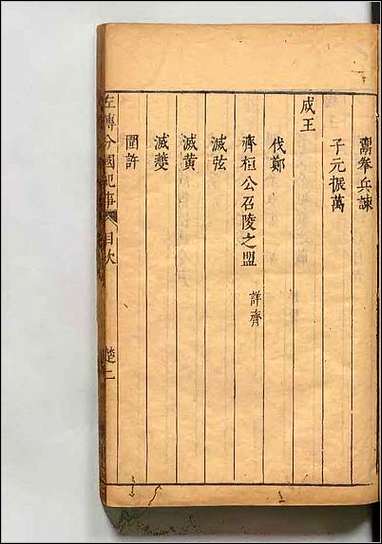 鬻拳兵諫
子元振萬
成王
伐鄭
齊桓公召陵之盟 詳齊
滅弦
滅黄
滅夔
圍許
左傳分國紀事 目次 楚二